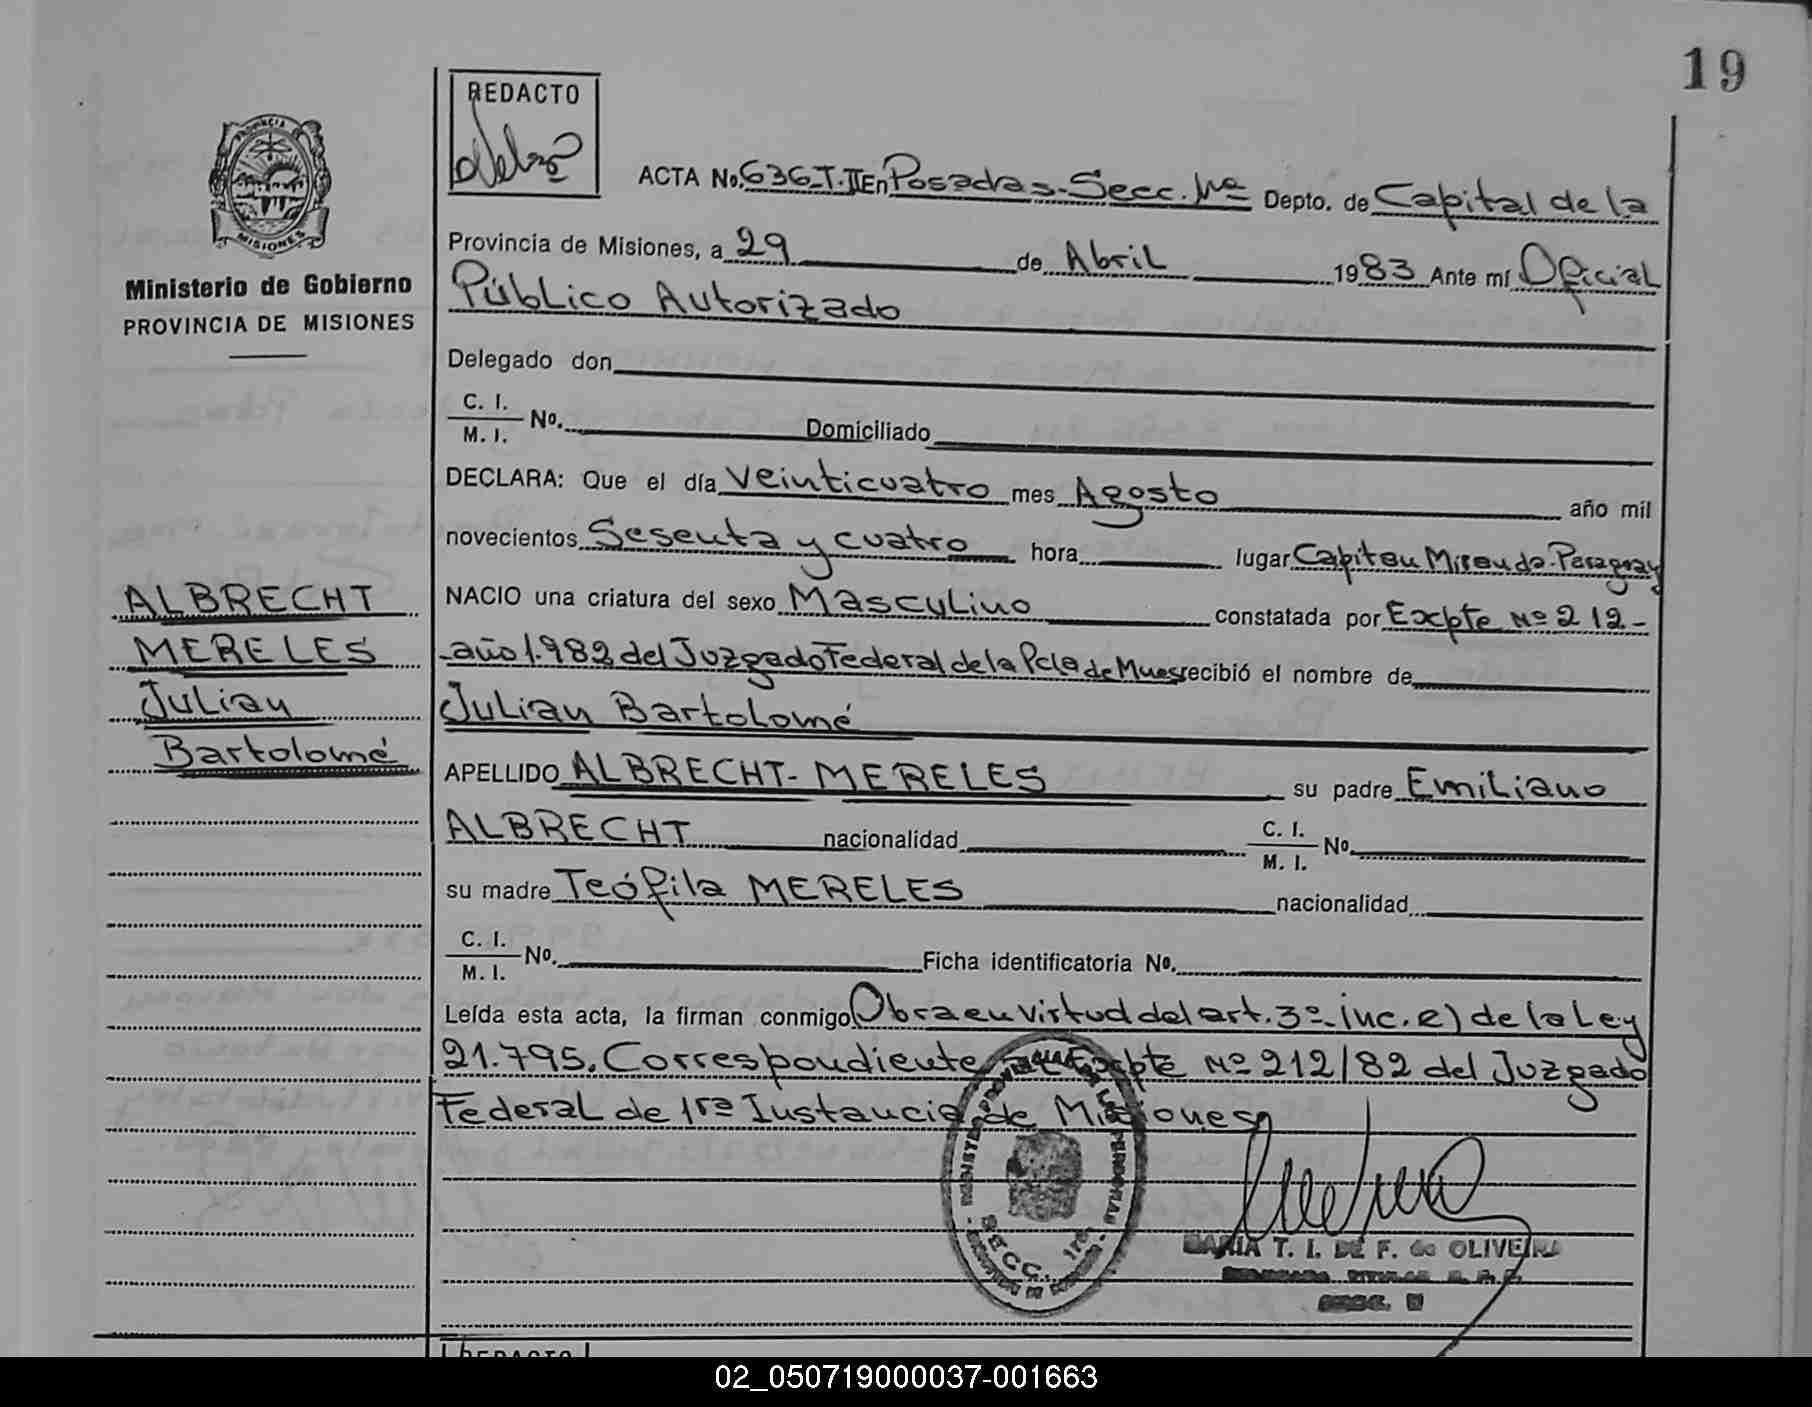 19
PROVINCIA DE
MISIONES
Ministerio de Gobierno
PROVINCIA DE MISIONES
ALBRECHT
MERELES
Julian
Bartolomé
REDACTO
ACTA No. 636-T.II En Posadas-Secc. Depto. de Capital de la
Provincia de Misiones, a 29 de Abril 1983 Ante mí Oficial
Público Autorizado
Delegado don
C. I.
M. I. No. Domiciliado
DECLARA: Que el día Veinticuatro mes Agosto año mil
novecientos Sesenta y cuatro hora lugar Capitan Miranda-Paraguay
NACIO una criatura del sexo Masculino constatada por Excpte Nº 212-
año 1.982, del Juzgado Federal de la Pcia de Mnes recibió el nombre de
Julian Bartolomé
APELLIDO ALBRECHT-MERELES su padre Emiliano
ALBRECHT nacionalidad C. I.
M. I. No.
su madre Teófila MERELES nacionalidad
C. I.
M. I. No. Ficha identificatoria No.
Leída esta acta, la firman conmigo Obra en virtud del art. 3º-inc. e) de la Ley
21.795. Correspondiente Excpte Nº 212/82 del Juzgado
Federal de 1ra Instancia de Misiones
SECC.
MARIA T. I. DE F. de OLIVEIRA
REDACTO
02_050719000037-001663